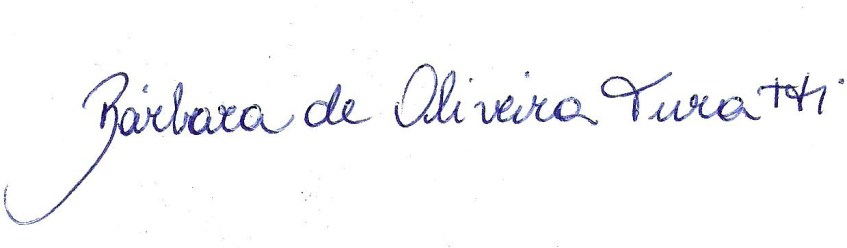 Bárbara de Oliveira Turatti